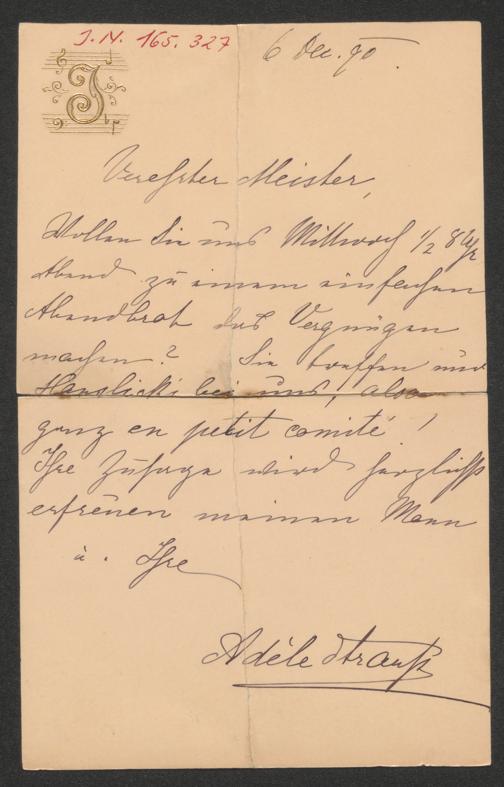 J. N. 165.327
6 Dec. 90.
J
Verehrter Meister,
Wollen Sie uns Mittwoch 1/2 8 Uhr
Abend zu einem einfachen
Abendbrot das Vergnügen
machen? Sie treffen nur
Hanslicks bei uns, also
ganz en petit comité!
Ihre Zusage wird herzlichst
erfreuen meinen Mann
u. Ihre
Adèle Strauß